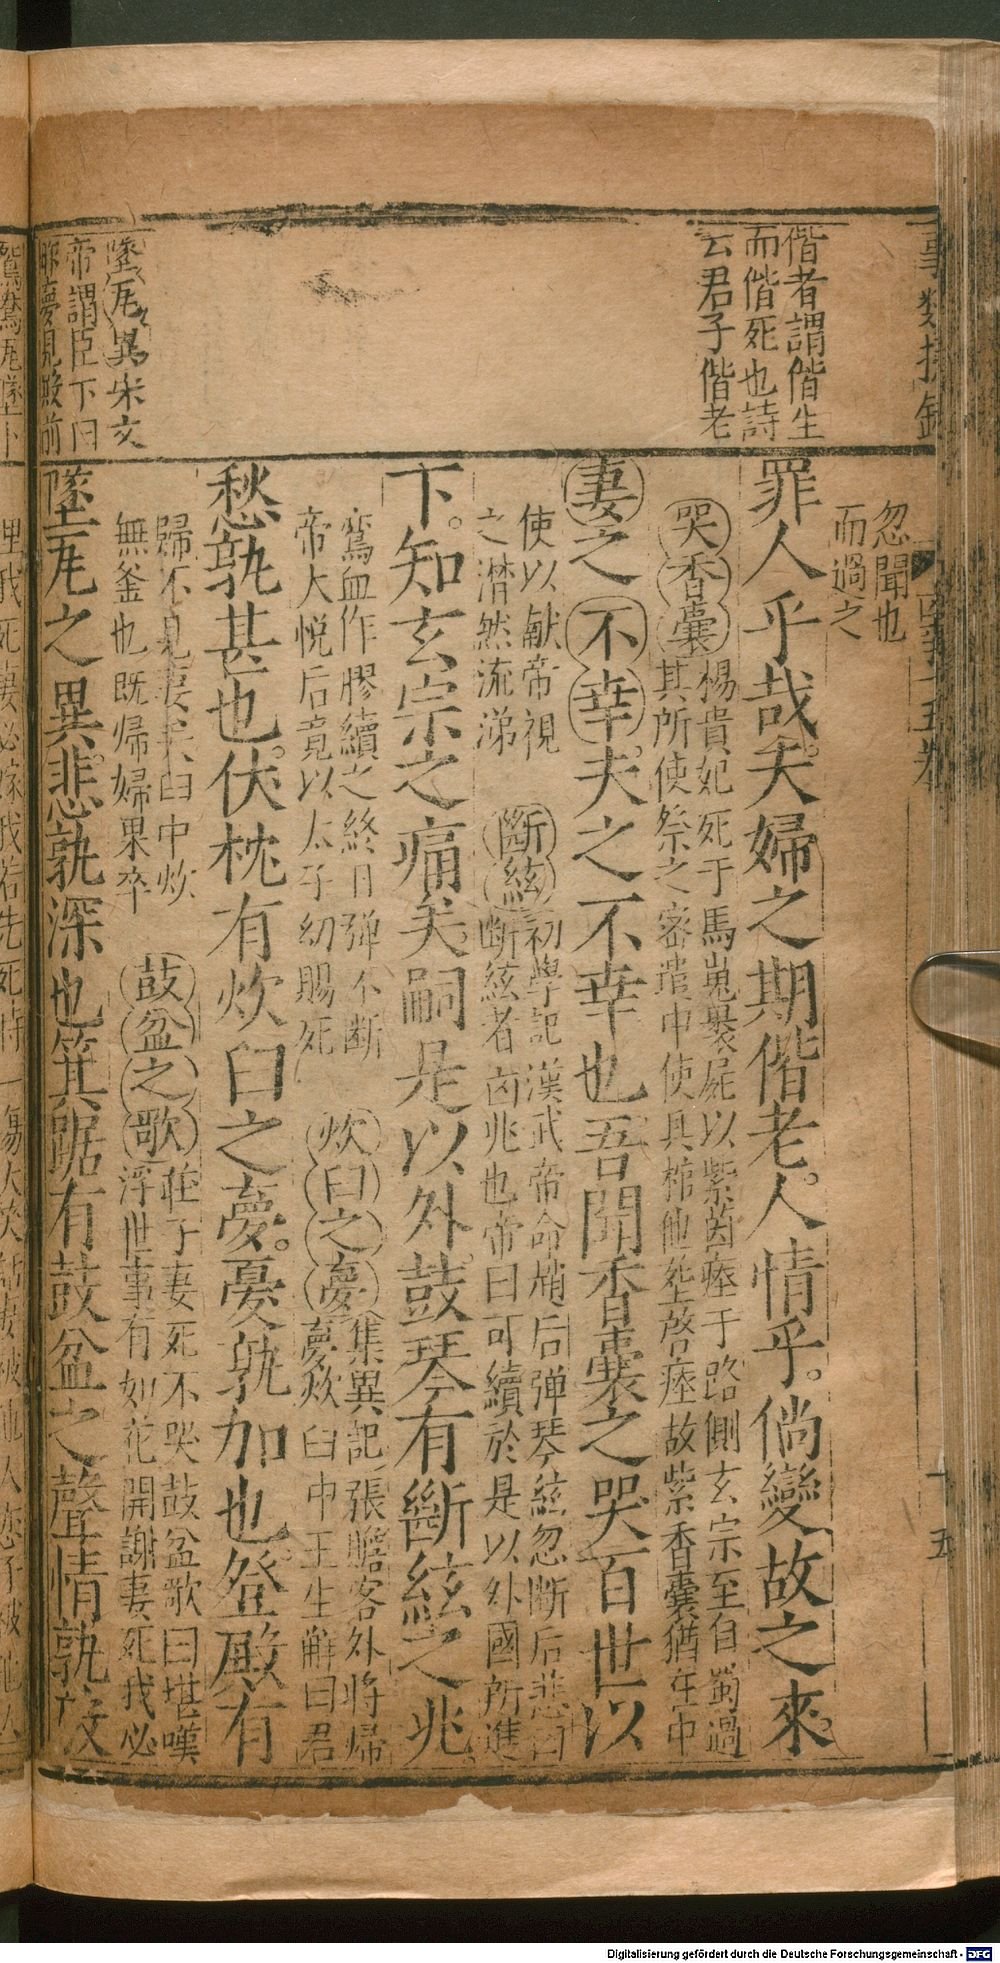 偕者謂偕生
而偕死也詩
云君子偕老
墜瓦異宋文
帝謂臣下曰
昨夢見殿前
忽聞也
而過之
罪人乎哉夫婦之期偕老人情乎。倘變故之來
哭香囊楊貴妃死于馬嵬裹屍以紫茵瘞于路側玄宗至自蜀過
其所使祭之密遣中使具棺他塟啓瘞故紫香囊猶在中
妻之不幸夫之不幸也吾聞香囊之哭百世以
使以献帝視
之潸然流涕
斷絃初學記漢武帝命焇后弹琴絃忽断后悲曰
断絃者凶兆也帝曰可續於是以外國所進
下。知玄宗之痛矣嗣是以外。鼓琴有斷絃之兆
鸞血作膠續之終日弹不断
帝大悦后竟以太子幼賜死
炊臼之夢集異記張瞻客外将帰
夢炊臼中王生解曰君
愁孰甚也。伏枕有炊臼之夢。憂孰加也。登殿有
歸不見妻矣臼中炊
無釜也既帰婦果卒
鼓盆之歌莊子妻死不哭鼓盆歌曰堪嘆
浮世事有如花開謝妻死我必
墜瓦之異。悲孰深也箕踞有鼓盆之聲情孰
埋我死妻必嫁我若先死時一塲大笑
五
Digitalisierung gefördert durch die Deutsche Forschungsgemeinschaft - DFG